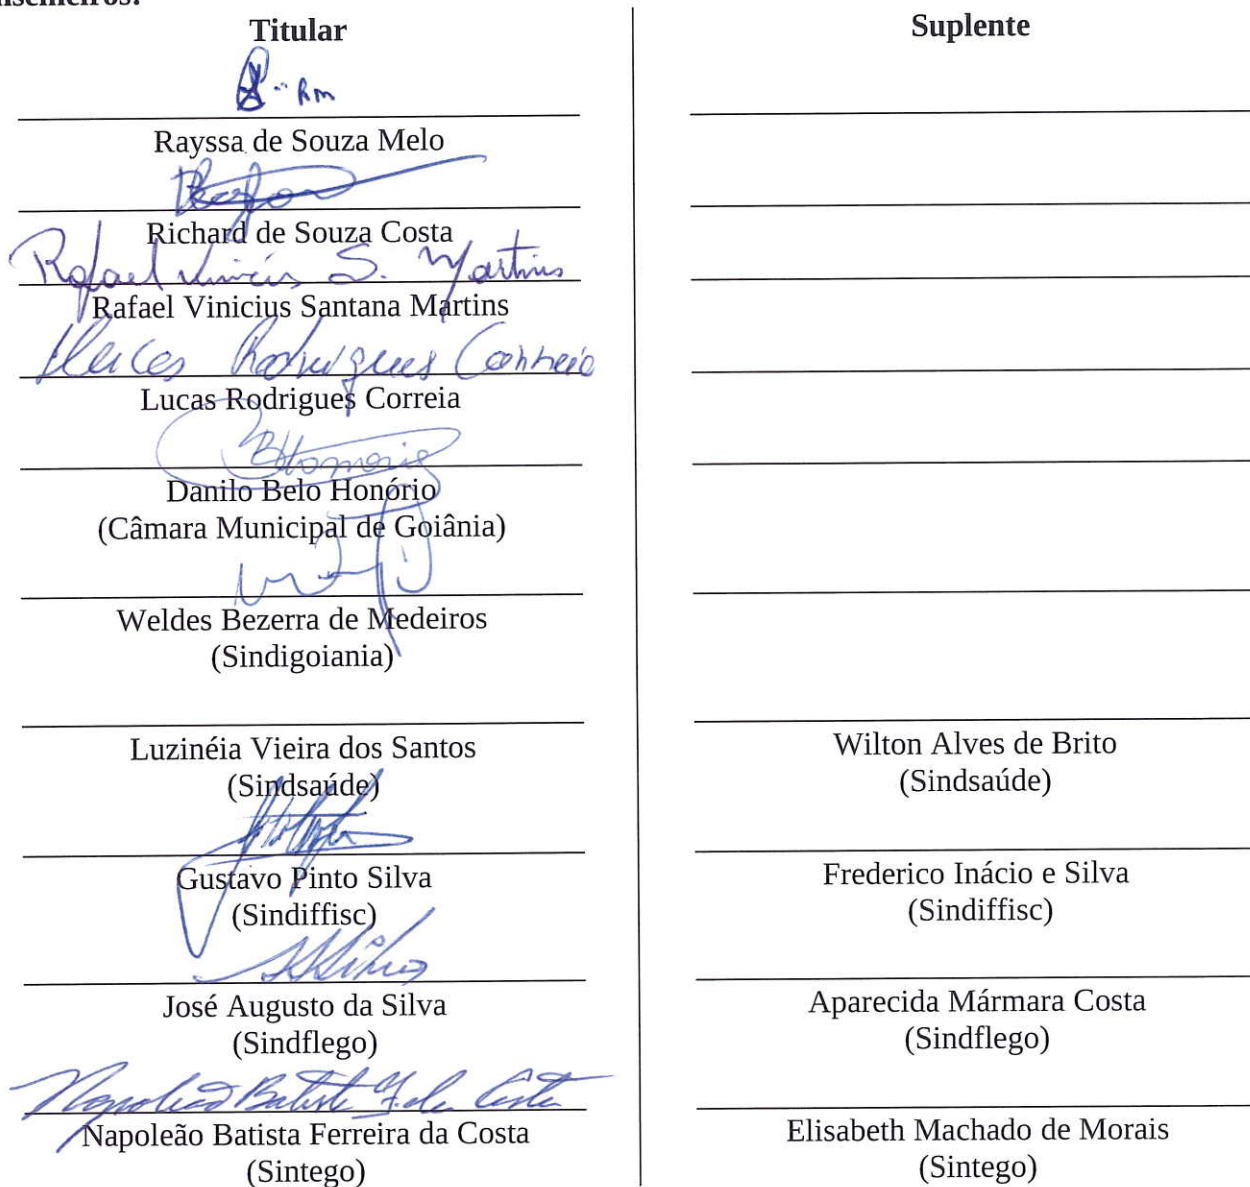 Titular
Rayssa de Souza Melo
Richard de Souza Costa
Rafael Vinicius S. Martins
Rafael Vinicius Santana Martins
Lucas Rodrigues Correia
Lucas Rodrigues Correia
Danilo Belo Honório
(Câmara Municipal de Goiânia)
Weldes Bezerra de Medeiros
(Sindigoiania)
Luzinéia Vieira dos Santos
(Sindsaúde)
Gustavo Pinto Silva
(Sindiffisc)
José Augusto da Silva
(Sindflego)
Napoleão Batista F. da Costa
Napoleão Batista Ferreira da Costa
(Sintego)
Suplente
Wilton Alves de Brito
(Sindsaúde)
Frederico Inácio e Silva
(Sindiffisc)
Aparecida Mármara Costa
(Sindflego)
Elisabeth Machado de Morais
(Sintego)